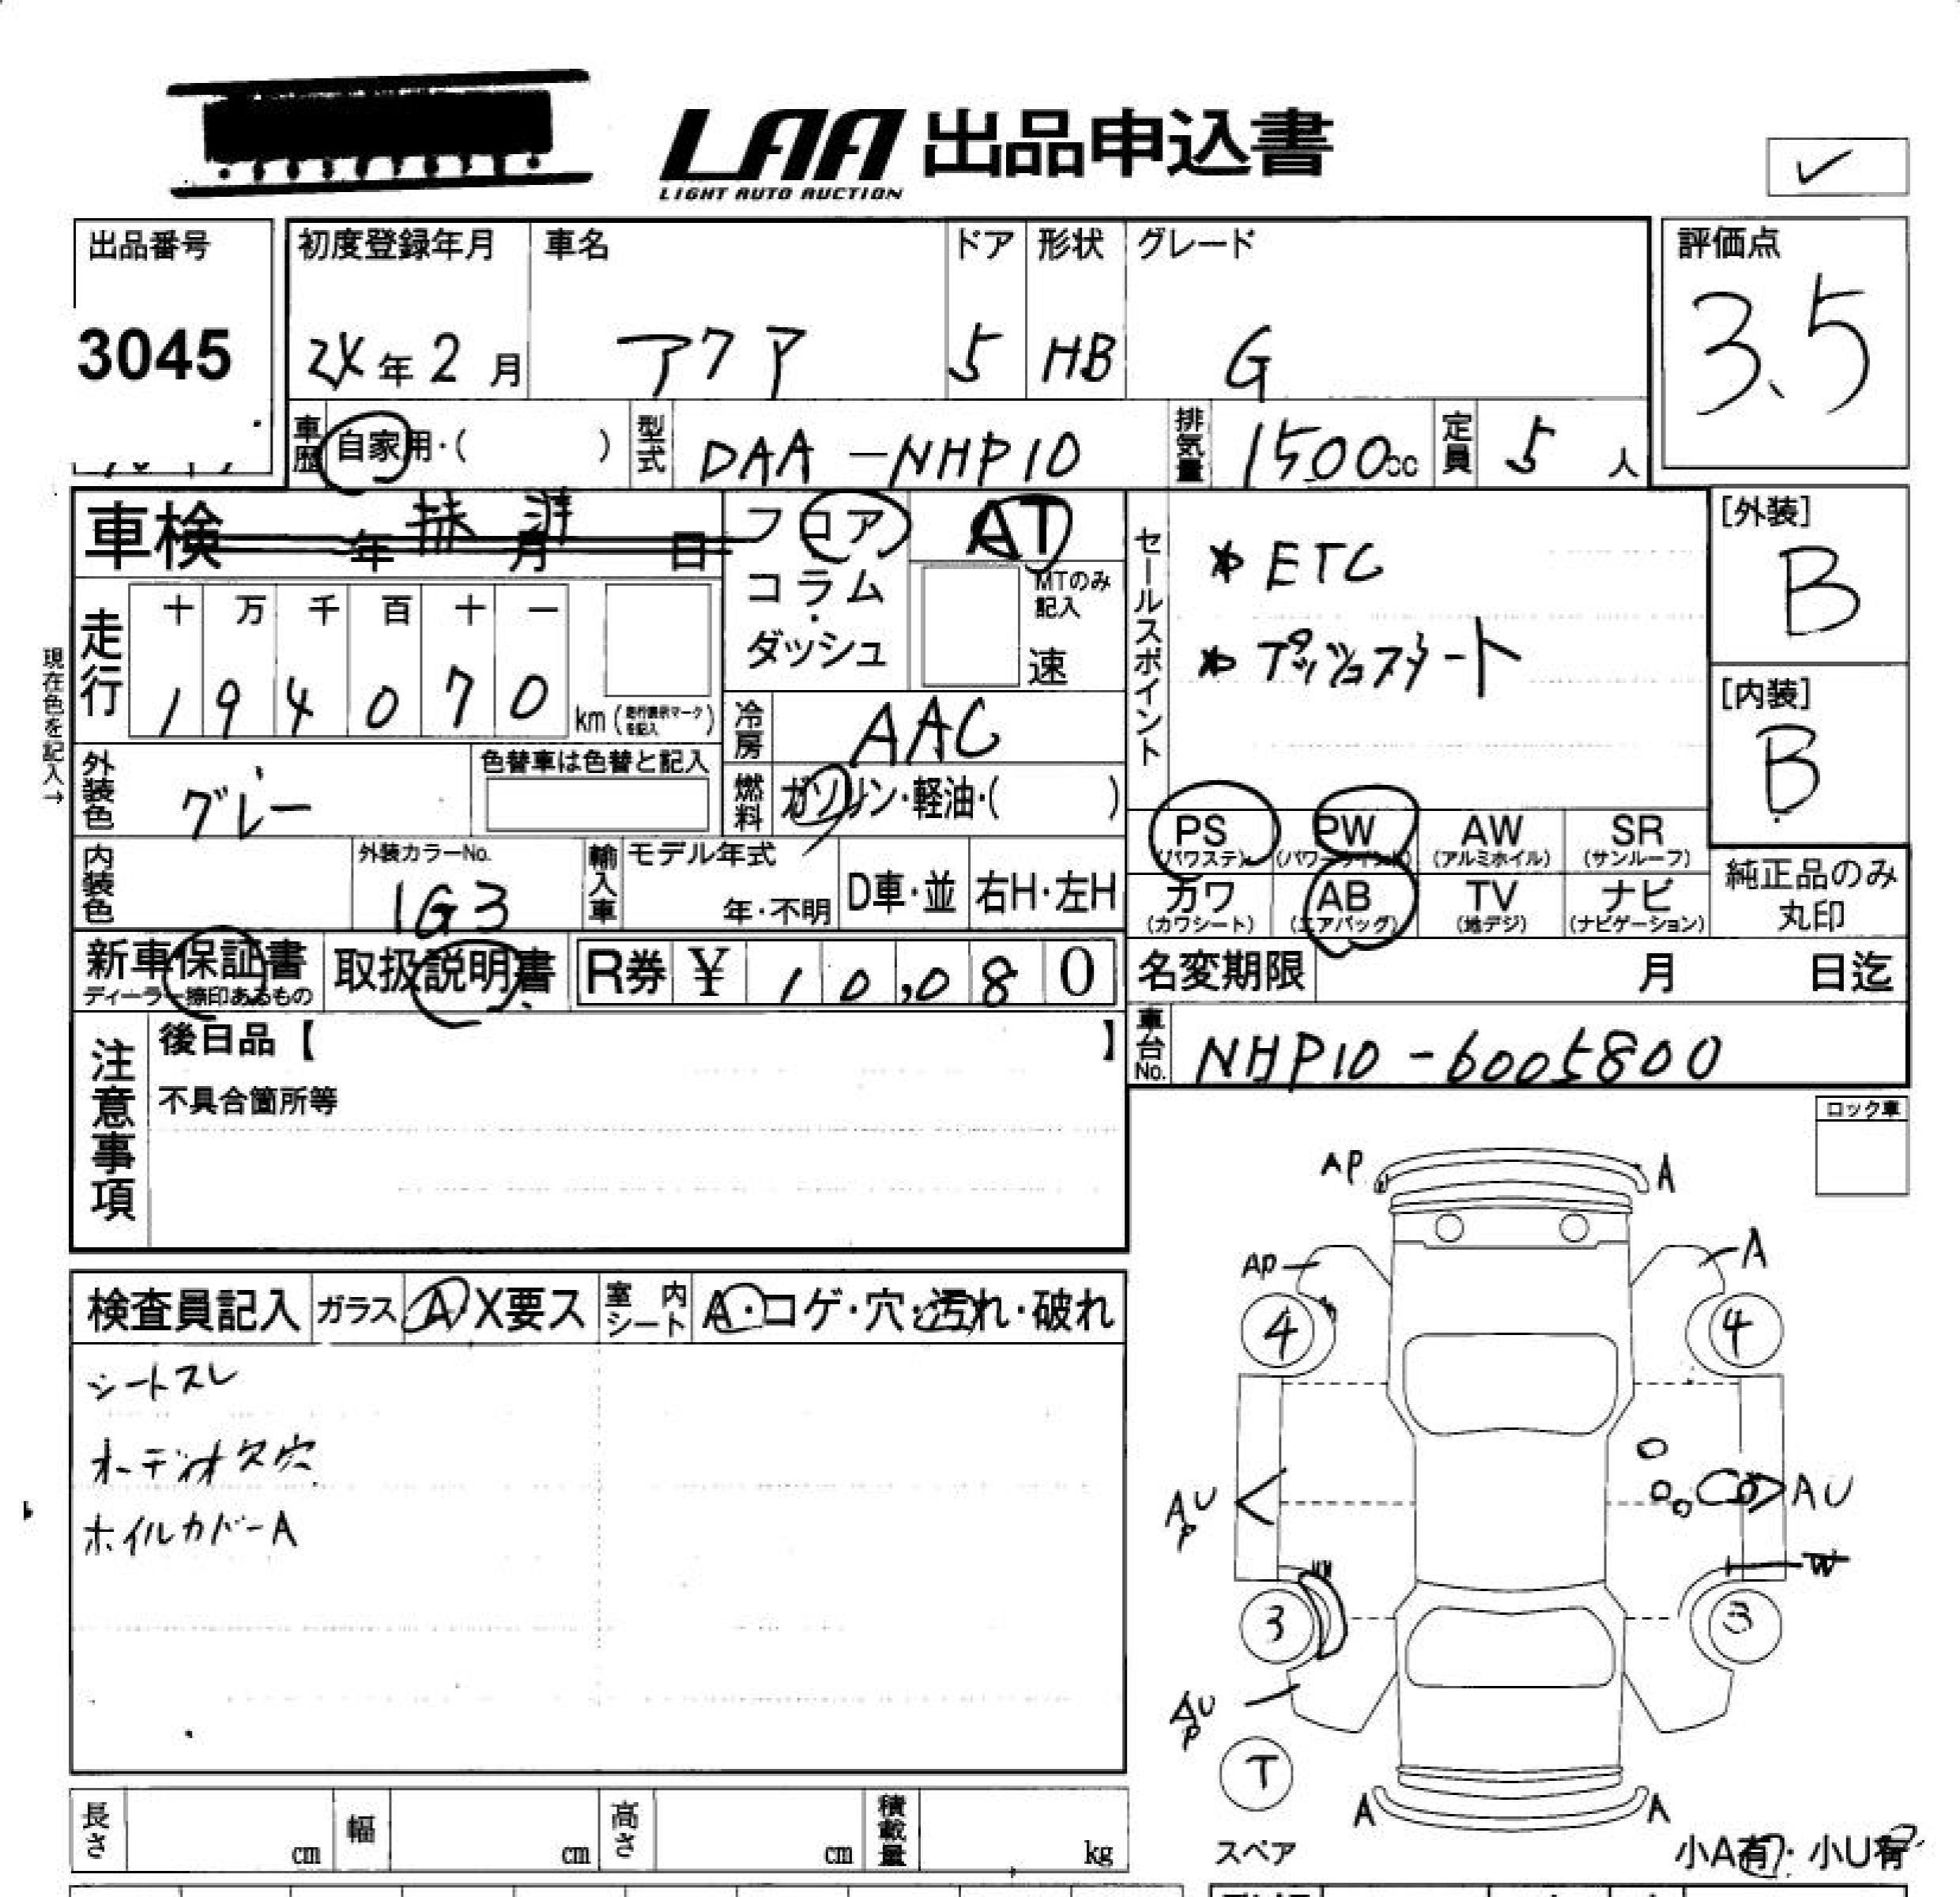 LAA 出品申込書
LIGHT AUTO AUCTION
出品番号
3045
初度登録年月
24年2月
車名
アクア
ドア
5
形状
HB
グレード
G
評価点
3.5
車歴
自家用・( )
型式
DAA-NHP10
排気量
1500cc
定員
5人
車検 年 月 日
抹消
フロア
コラム
・
ダッシュ
AT
MTのみ
記入
速
セールスポイント
* ETC
* プッシュスタート
[外装]
B
[内装]
B
現在色を記入→
走行
十 万 千 百 十 一
1 9 4 0 7 0 km (走行表示マークを記入)
冷房
AAC
燃料
ガソリン・軽油・( )
外装色
グレー
色替車は色替と記入
内装色
外装カラーNo.
1G3
輸入車
モデル年式
年・不明
D車・並
右H・左H
PS
(パワステ)
PW
(パワーウインド)
AW
(アルミホイル)
SR
(サンルーフ)
カワ
(カワシート)
AB
(エアバッグ)
TV
(地デジ)
ナビ
(ナビゲーション)
純正品のみ
丸印
新車保証書
ディーラー捺印あるもの
取扱説明書
R券 ¥ 10,080
名変期限 月 日迄
車台No.
NHP10-6005800
注意事項
後日品【 】
不具合箇所等
ロック車
検査員記入
ガラス A X要ス
室内シート A・コゲ・穴・汚れ・破れ
シートスレ
オーディオ欠穴
ホイルカバーA
AP
A
AP
A
4
4
AU
P
AU
W
3
3
AU
P
T
スペア
A
A
小A有・小U有
長さ cm
幅 cm
高さ cm
積載量 kg